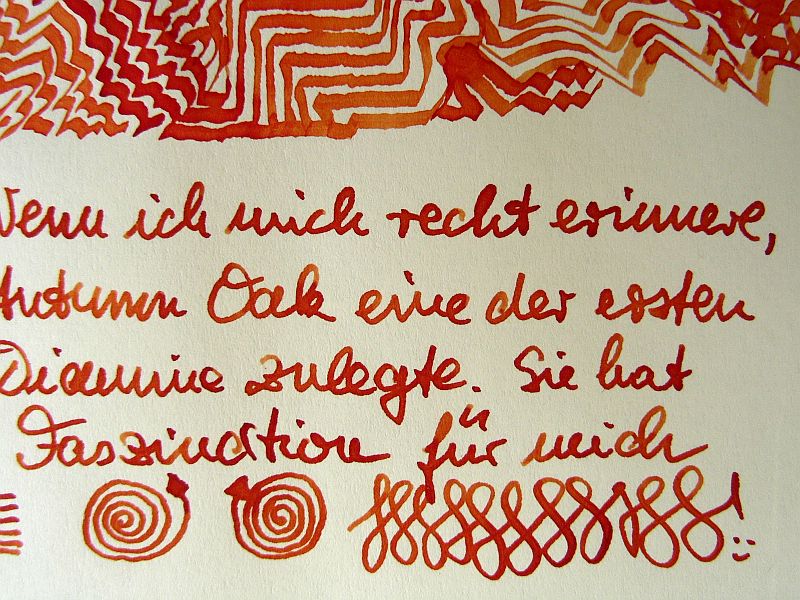 Wenn ich mich recht erinnere,
Autumn Oak eine der ersten
Diamine zulegte. Sie hat
Faszination für mich
! :)